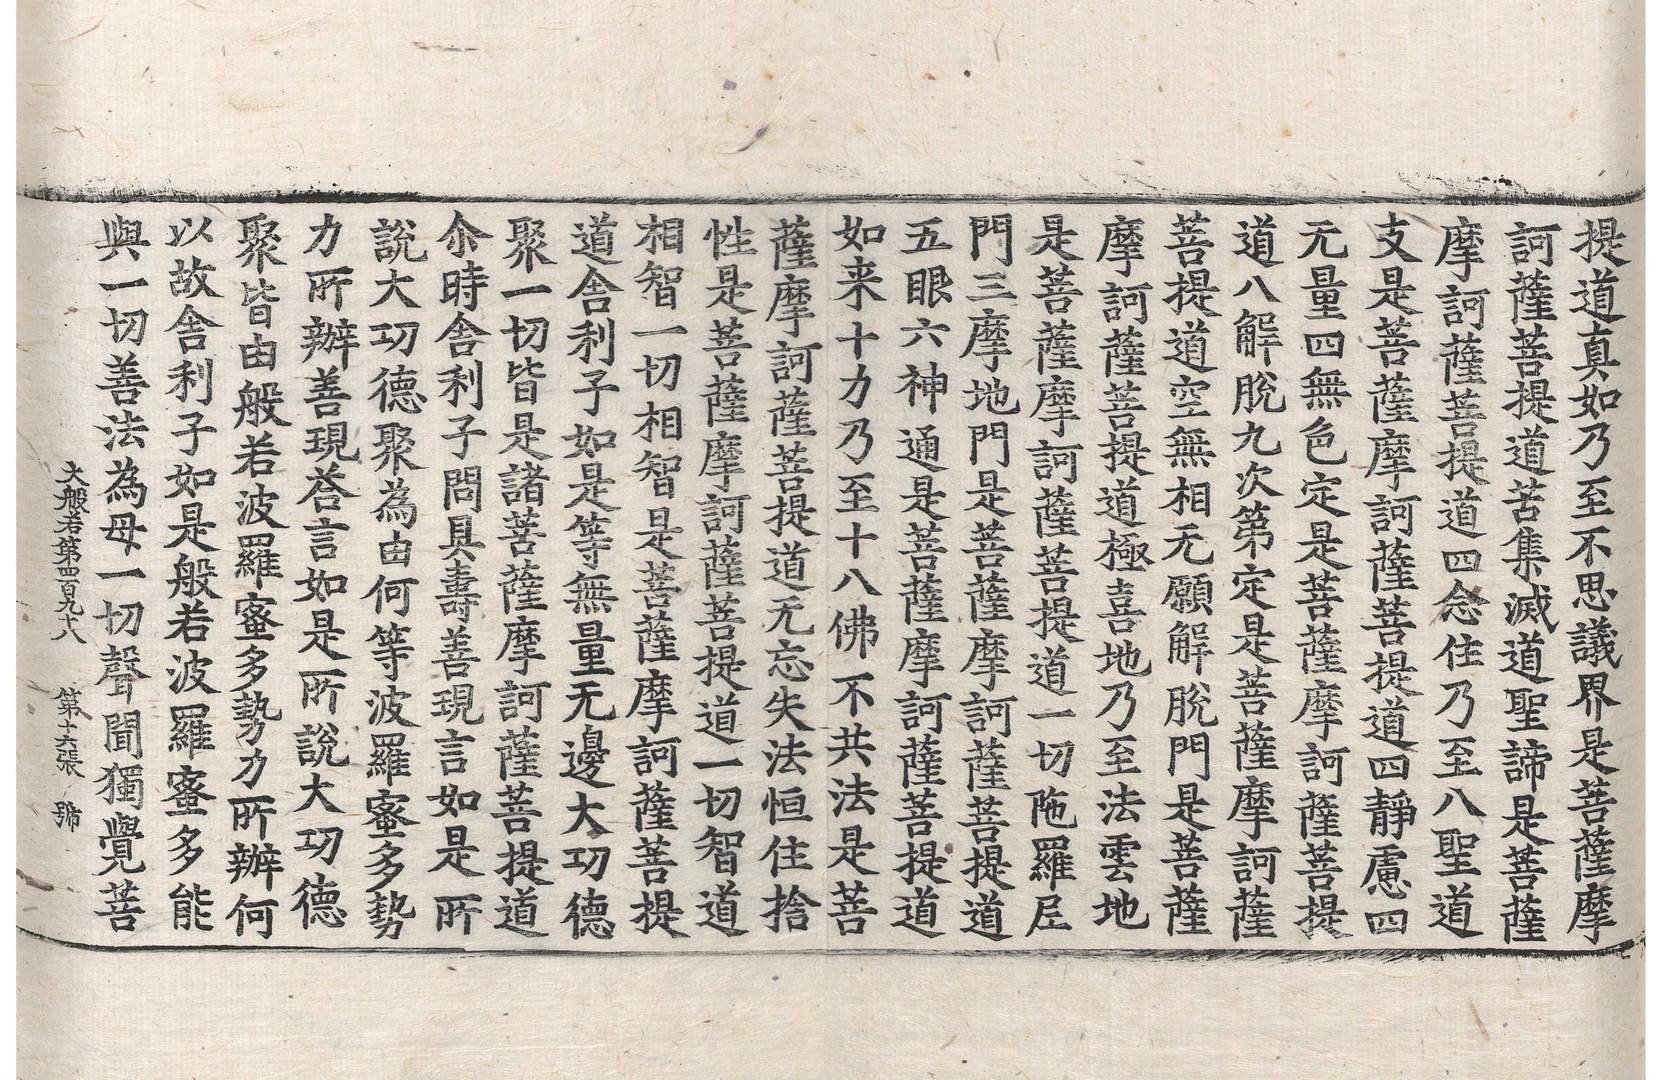 提道真如乃至不思議界是菩薩摩
訶薩菩提道苦集滅道聖諦是菩薩
摩訶薩菩提道四念住乃至八聖道
支是菩薩摩訶薩菩提道四靜慮四
无量四無色定是菩薩摩訶薩菩提
道八解脫九次第定是菩薩摩訶薩
菩提道空無相无願解脫門是菩薩
摩訶薩菩提道極喜地乃至法雲地
是菩薩摩訶薩菩提道一切陁羅尼
門三摩地門是菩薩摩訶薩菩提道
五眼六神通是菩薩摩訶薩菩提道
如来十力乃至十八佛不共法是菩
薩摩訶薩菩提道无忘失法恒住捨
性是菩薩摩訶薩菩提道一切智道
相智一切相智是菩薩摩訶薩菩提
道舍利子如是等無量无邊大功德
聚一切皆是諸菩薩摩訶薩菩提道
尒時舍利子問具壽善現言如是所
說大功德聚為由何等波羅蜜多勢
力所辦善現荅言如是所說大功德
聚皆由般若波羅蜜多勢力所辦何
以故舍利子如是般若波羅蜜多能
與一切善法為母一切聲聞獨覺菩
大般若第四百九十八 第十六張 號